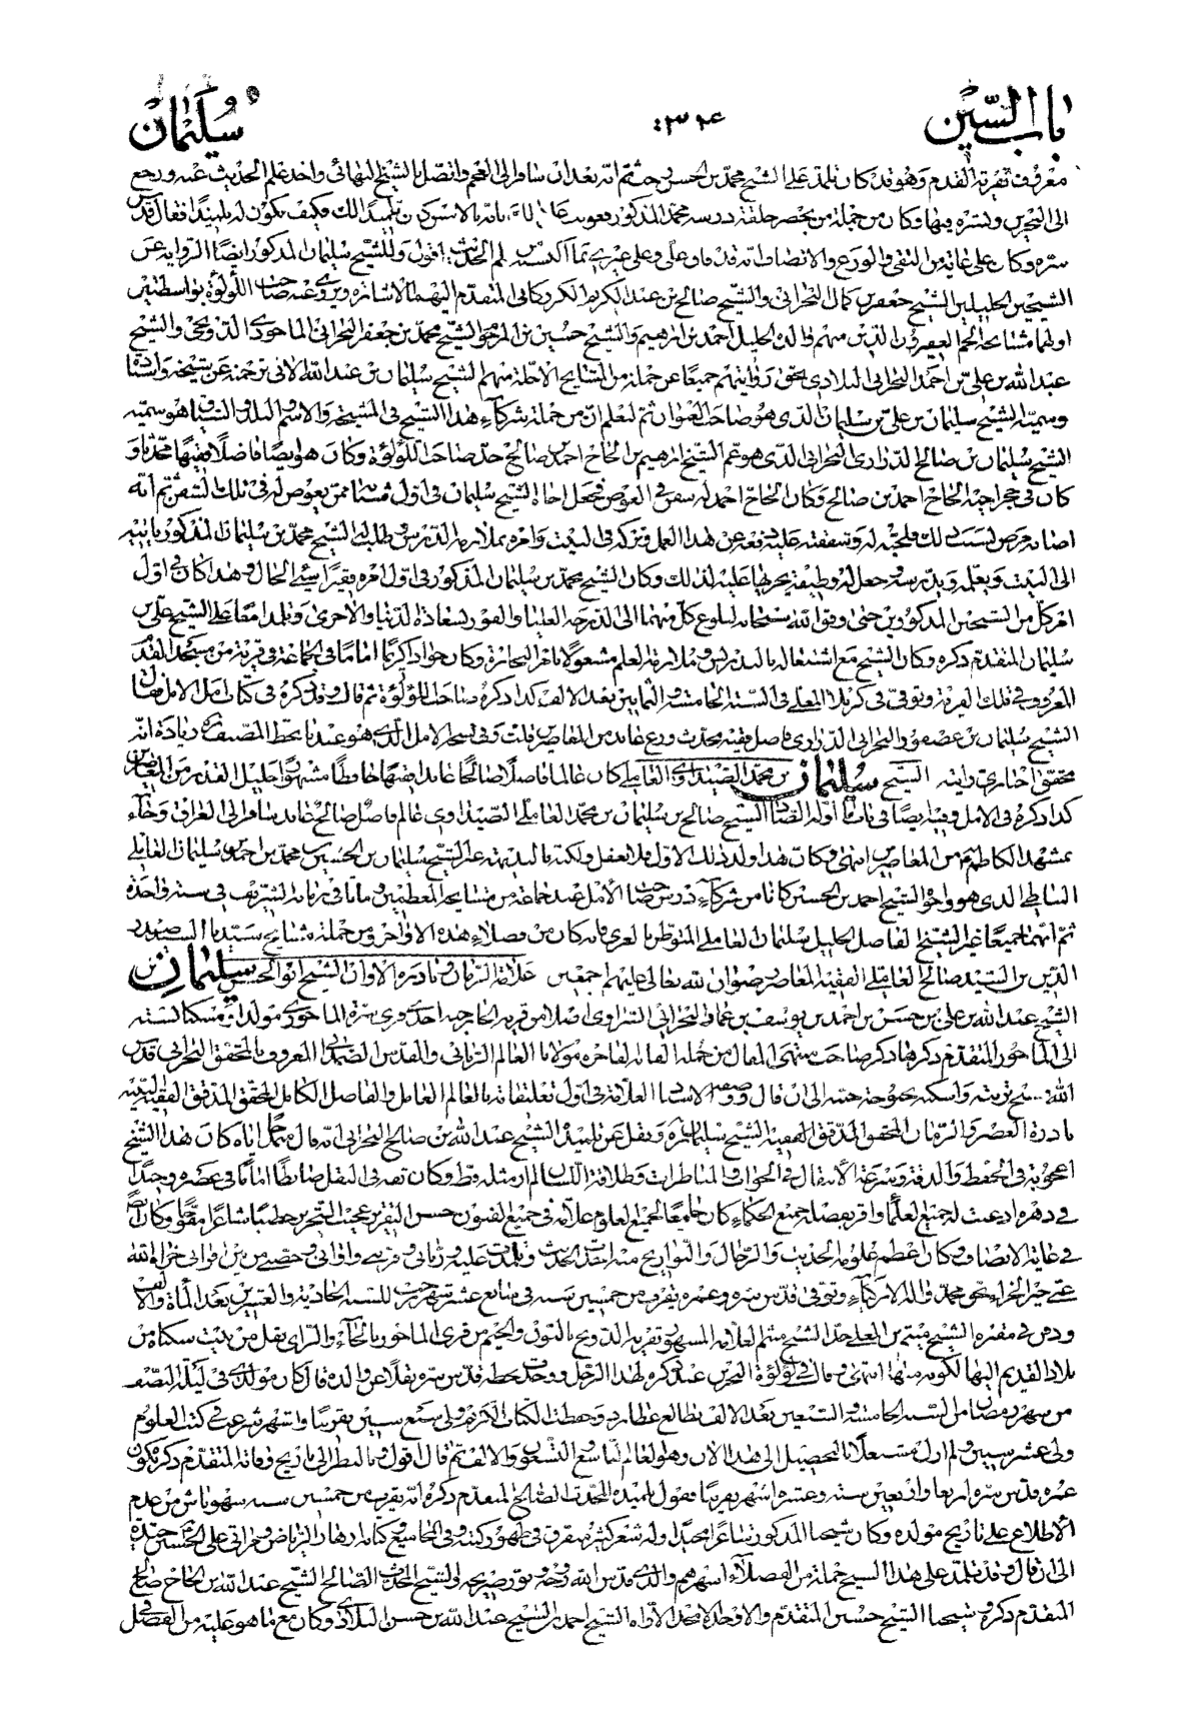 باب السّين ٣٢٤ سُليمان
معروف بقرية القدم وهو قد كان تلمذ على الشيخ محمد بن الحسن بن رجب ثم انه بعد ان سافر الى العجم واتصل بالشيخ البهائى واخذ علم الحديث عنه ورجع
الى البحرين ونشره فيها وكان من جملة من يحضر حلقة درسه محمد المذكور فعوتب بانه بالامس كان تلميذا لك وكيف تكون له تلميذا فقال قدس
سره وكان على غاية من التقى والورع والانصاف انه قد فاق على وعلى غيرى بما علم الحديث اقول وللشيخ سليمان المذكور ايضا الرواية عن
الشيخين الجليلين الشيخ جعفر بن كمال البحرانى والشيخ صالح بن عبد الكريم الكرزكانى المتقدم اليهما الاشارة ويروى عنه صاحب اللؤلؤة بواسطتين
اولهما مشايخه الجم الغفير الذين منهم والده الجليل احمد بن ابرهيم والشيخ حسين بن الشيخ محمد بن جعفر البحرانى الماحوزى والشيخ
عبد الله بن على بن احمد البحرانى البلادى بحق روايتهم جميعا عن جملة من المشايخ الاجلة منهم الشيخ سليمان بن عبد الله الاتى ترجمته عن شيخه واستاده
وسميّه الشيخ سليمان بن على بن سليمان الذى هو صاحب العنوان ثم ليعلم ان من جملة شركاء هذا الشيخ فى المشيخة والاسم والبلد هو سميّه
الشيخ سليمان بن صالح الدرازى البحرانى الذى هو عم الشيخ ابرهيم بن الحاج احمد بن صالح جد صاحب اللؤلؤة وكان هو ايضا فاضلا فقيها محدثا و
كان فى حجر اخيه الحاج احمد بن صالح وكان الحاج احمد له سفن فى الغوص فجعل اخاه الشيخ سليمان فى اول ممن يغوص له فى تلك السفن ثم انه
اصابه مرض بسبب ذلك ولمحبته له وشفقته عليه رفعه عن هذا العمل وتركه فى البيت وامره بملازمة الدرس وطلب الشيخ محمد بن سليمان المذكور ياتيه
الى البيت ويعلمه ويدرسه وجعل له وظيفة يجريها عليه لذلك وكان الشيخ محمد بن سليمان المذكور فى اول امره فقيرا سيئ الحال وهذا كان فى اول
امر كل من الشيخين المذكورين حتى وفق الله سبحانه لبلوغ كل منهما الى الدرجة العليا والفوز بسعادة الدنيا والاخرى وتلمذا معا على الشيخ على بن
سليمان المتقدم ذكره وكان الشيخ مع اشتغاله بالتدريس وملازمة العلم مشغولا بامر التجارة وكان جوادا كريما اماما فى الجماعة فى قريته من مسجد القدم
المعروف فى تلك القرية وتوفى فى كربلا المعلى فى السنة الخامسة والثمانين بعد الالف كذا ذكره صاحب اللؤلؤة ثم قال وقد ذكره فى كتاب امل الامل فقال
الشيخ سليمان بن عصفور البحرانى الدرازى فاضل فقيه محدث ورع عابد من المعاصرين قلت وفى نسخة الامل الذى هو عندنا بخط المصنف زيادة انه
محقق اخبارى رايته الشيخ سليمان بن محمد الصيداوى العاملى كان عالما فاضلا صالحا عابدا فقيها حافظا مشهورا جليل القدر من المعاصرين
كذا ذكره فى الامل وفيه ايضا فى باب ما اوله الصاد الشيخ صالح بن سليمان بن محمد العاملى الصيداوى عالم فاضل صالح عابد سافر الى العراق وجاء
بمشهد الكاظم من المعاصرين انتهى وكان هذا ولد ذلك الاول فلا تغفل ولكنه بالبديهة غير الشيخ سليمان بن الحسين بن محمد بن احمد بن سليمان العاملى
النباطى الذى هو واخوه الشيخ احمد بن الحسين كانا من شركاء درس صاحب الامل عند جماعة من مشايخه المعظمين وماتا فى زمانه الشريف فى سنة واحدة
ثم انهما جميعا غير الشيخ الفاضل الجليل سليمان العاملى المتوطن بالغرى فانه كان من فضلاء هذه الاواخر ومن جملة مشايخ سيدنا السيد صدر
الدين بن السيد صالح العاملى الفقيه المعاصر رضوان الله تعالى عليهم اجمعين علامة الزمان ونادرة الاوان الشيخ ابو الحسن سليمان بن
الشيخ عبد الله بن على بن حسن بن احمد بن يوسف بن عمار البحرانى السترواى اصلا من قرية الخارجية احدى قرى سترة الماحوزى مولدا ومسكنا نسبته
الى الماحوز المتقدم ذكرها ذكر صاحب منتهى المقال من جملة القابه الفاخرة مولانا العالم الربانى والمقدس الصمدانى المعروف بالمحقق البحرانى قدس
الله تربته واسكنه بحبوحة جنته الى ان قال ووصفه الاستاد العلامة فى اول تعليقاته بالعالم العامل والفاضل الكامل المحقق المدقق الفقيه النبيه
نادرة العصر والزمان المحقق المدقق الفقيه الشيخ سليمان ره ونقل عن تلميذه الشيخ عبد الله بن صالح البحرانى انه قال كان هذا الشيخ
اعجوبة فى الحفظ والدقة وسرعة الانتقال فى الجواب والمناظرات وطلاقة اللسان لم ار مثله قط وكان ثقة فى النقل ضابطا اماما فى عصره وحيدا
فى دهره اذعنت له جميع العلماء واقر بفضله جميع الحكماء كان جامعا لجميع العلوم علامة فى جميع الفنون حسن التقرير عجيب التحرير خطيبا شاعرا مفوها وكان ايضا
فى غاية الانصاف وكان اعظم علومه الحديث والرجال والتواريخ منه اخذت الحديث وتلمذت عليه وربانى وقربنى وآوانى واختصنى من بين اقرانى جزاه الله
عنى خير الجزاء بحق محمد واله الازكياء وتوفى قدس سره وعمره يقرب من خمسين سنة فى سابع عشر شهر رجب للسنة الحادية والعشرين بعد المأة والالف
ودفن فى مقبرة الشيخ ميثم بن المعلى جد الشيخ ميثم العلامة المشهور بقرية الدونج بالنون والجيم من قرى الماحوز بالحاء والزاى نقل من بيت سكناه من
بلاد القديم اليها لكونه منها انتهى وقال فى لؤلؤة البحرين عند ذكره لهذا الرجل ووجدت بخطه قدس سره نقلا عن والده قال كان مولدى فى ليلة النصف
من شهر رمضان من السنة الخامسة والسبعين بعد الالف بطالع عطارد وحفظت الكتاب الكريم ولى سبع سنين تقريبا واشهر وشرعت فى كتب العلوم
ولى عشر سنين ولم ازل مشتغلا بالتحصيل الى هذا الان وهو العام التاسع والتسعون والالف ثم قال اقول وبالنظر الى تاريخ وفاته المتقدم ذكره يكون
عمره قدس سره اربعا واربعين سنة وعشرة اشهر تقريبا فقول تلميذه المحدث الصالح المتقدم ذكره انه يقرب من خمسين سنة سهو ناش من عدم
الاطلاع على تاريخ مولده وكان شيخنا المذكور شاعرا مجيدا وله شعر كثير متفرق فى ظهور كتبه وفى المجاميع كتابه ازهار الرياض ومراثى على الحسين جيدة
الى ان قال وقد تلمذ على هذا الشيخ جملة من الفضلاء اشهرهم والدى قدس الله روحه ونور ضريحه والشيخ المحدث الصالح الشيخ عبد الله بن الحاج صالح
المتقدم ذكره وشيخنا الشيخ حسين المتقدم والاوحد الامجد الاواه الشيخ احمد بن الشيخ عبد الله بن حسن البلادى وكان مع ما هو عليه من الفضل فى